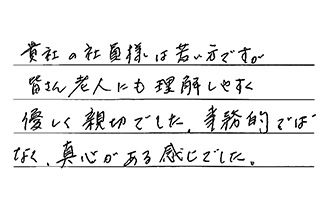 貴社の社員様は若い方ですが
皆さん老人にも理解しやすく
優しく親切でした、事務的では
なく、真心がある感じでした。